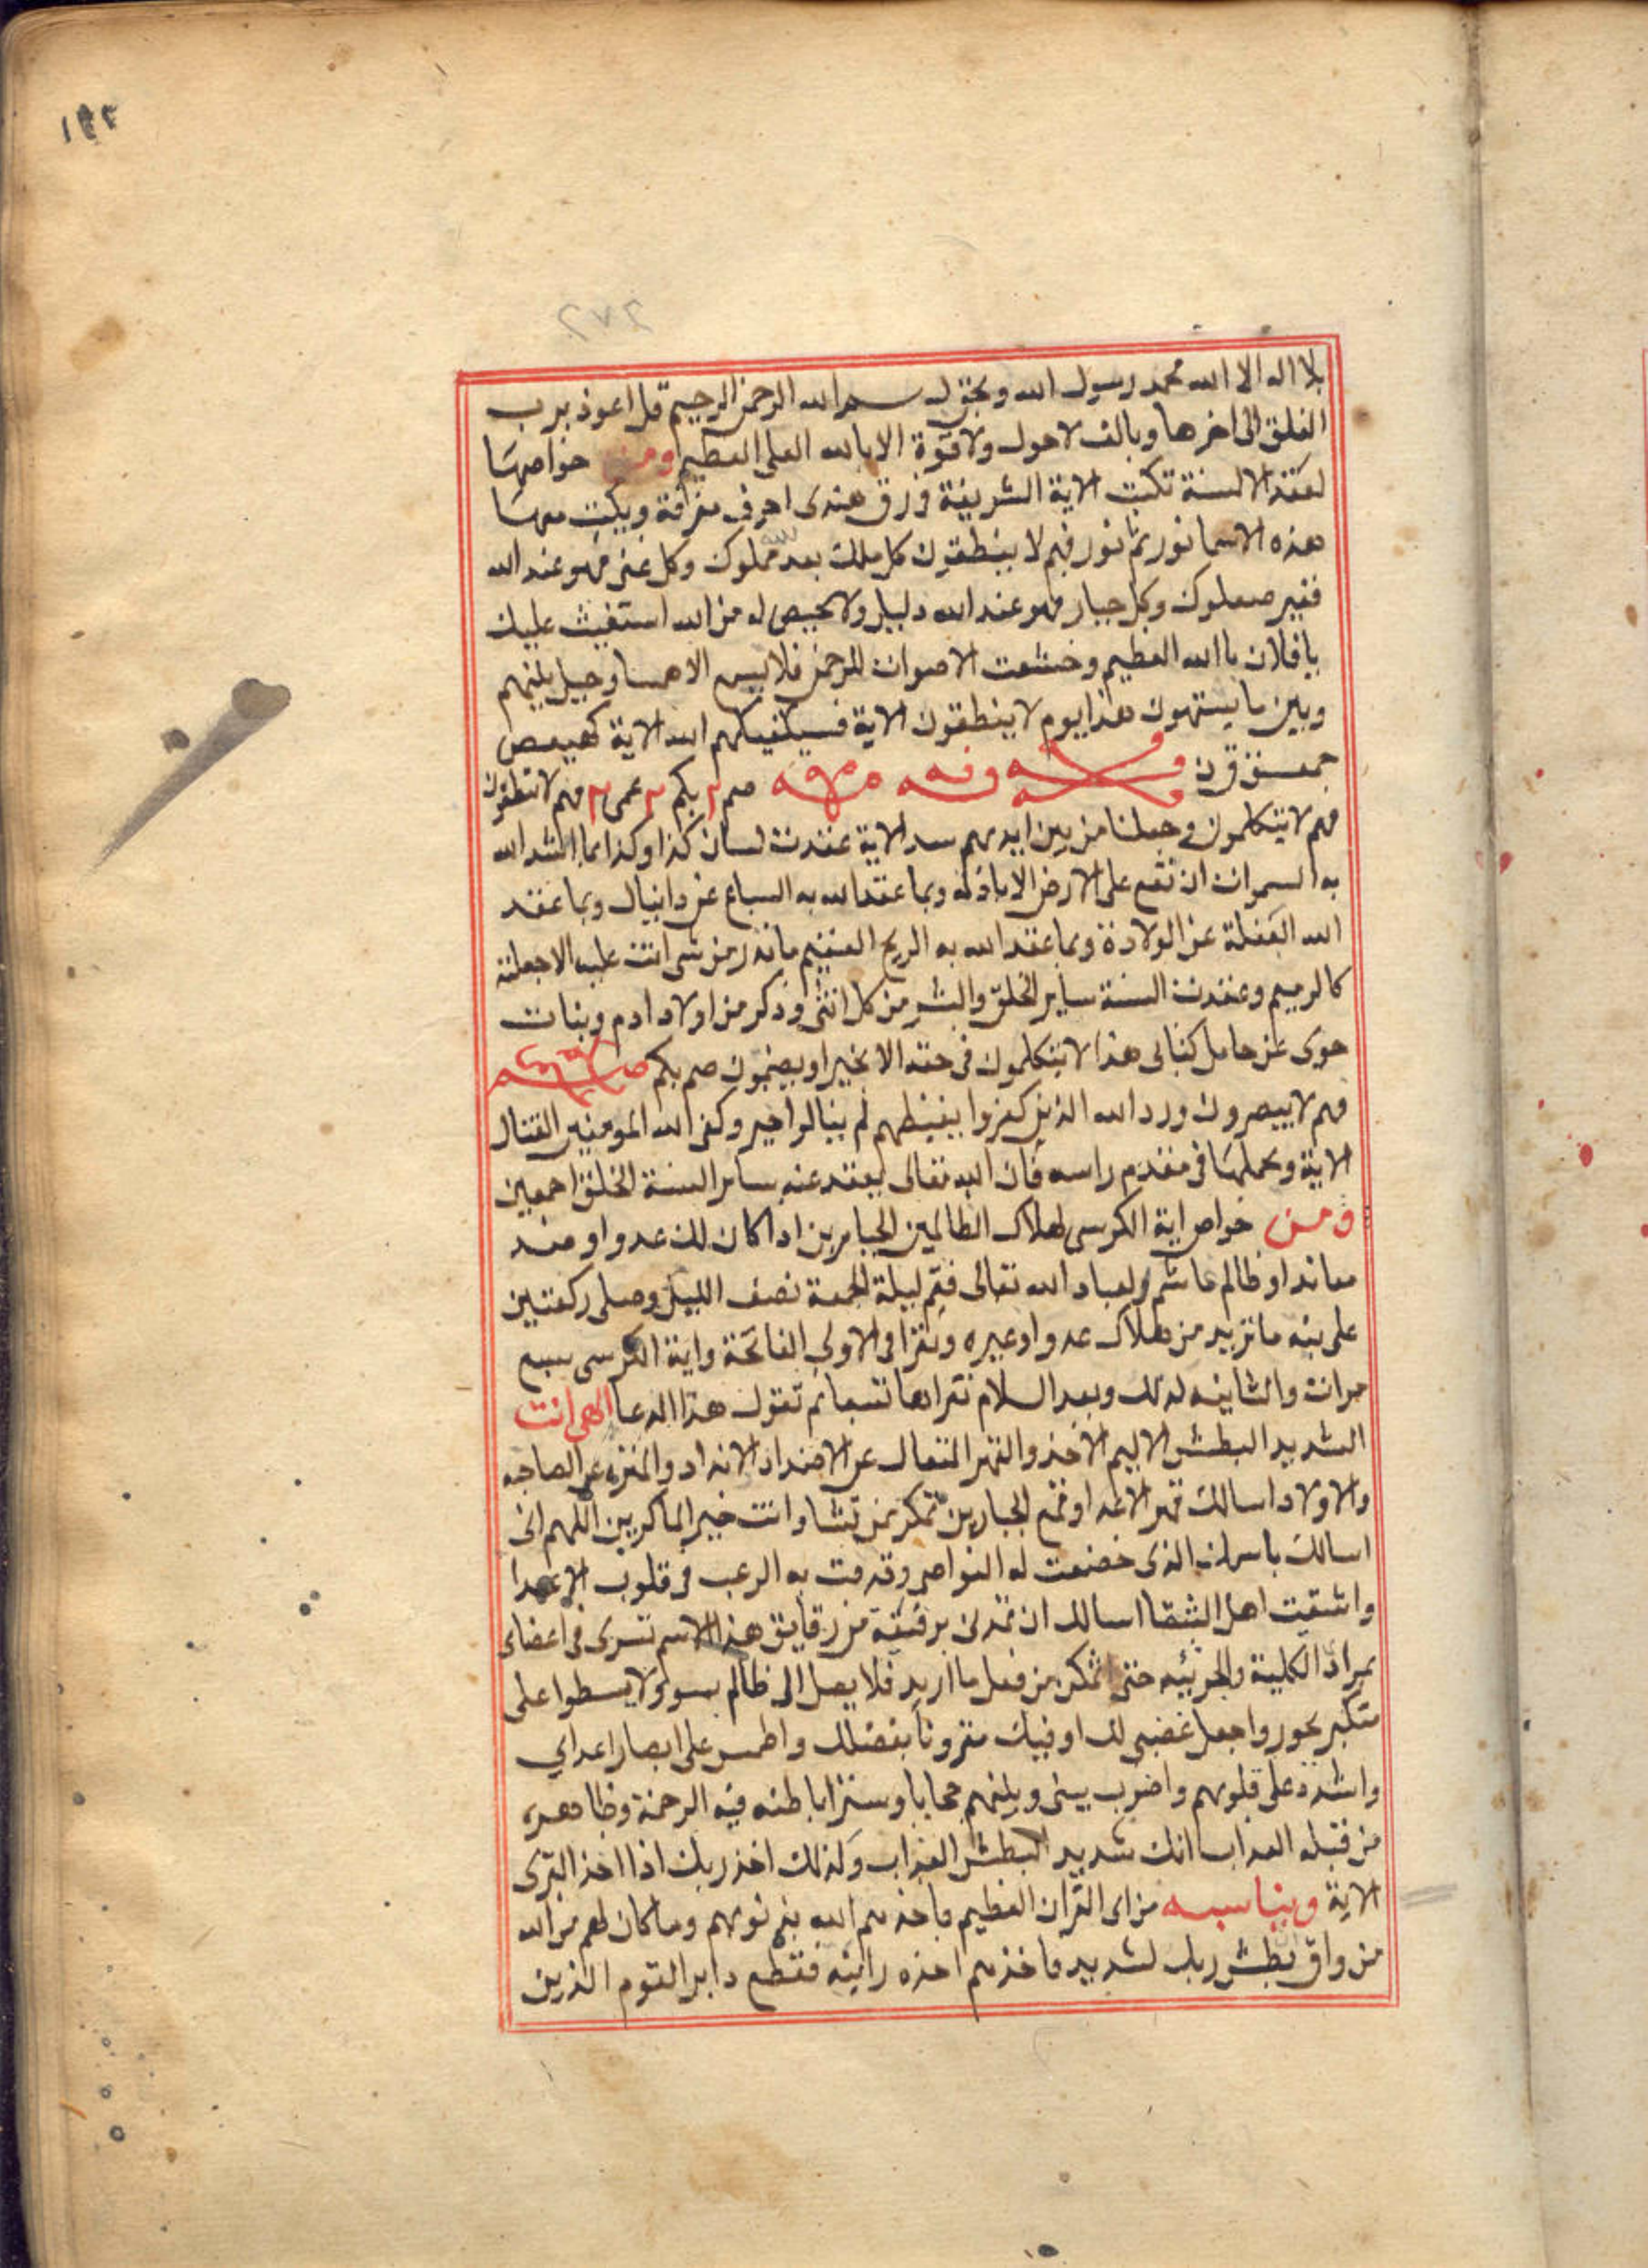 ١٩٢
٢٧٢
بلا اله الا الله محمد رسول الله وبحق بسم الله الرحمن الرحيم قل اعوذ برب
الفلق الى اخرها وبالف لاحول ولا قوة الا بالله العلى العظيم ومن خواصها
لعقد الالسنة تكتب الاية الشريفة فى رق هندى احرف مفرقة ويكتب معها
هذه الاسما نور ثم نور فهم لا ينطقون كل ملك بعد الله مملوك وكل غنى فهو عند الله
فقير صعلوك وكل جبار فهو عند الله دليل ولا محيص له من الله استغيث عليك
يا فلان باالله العظيم وخشعت الاصوات للرحمن فلا الا همسا وحيل بينهم
وبين ما يشتهون هذا يوم لا ينطقون الاية فسيكفيكهم الله الاية كهيعص
حمعسق ق ن صم ٢ بكم ٣ عمى ٣ فهم لا ينطقون
فهم لا يتكلمون وجعلنا من بين ايديهم سد الاية عقدت لسان كذا وكذا بما الله
به السموات ان تقع على الارض الا باذنه وبما عقد الله به السباع عن دانيال وبما عقد
الله البغلة عن الولادة وبما عقد الله به الريح العقيم ما تذر من شى اتت عليه الا جعلته
كالرميم وعقدت السنة ساير الخلق والبشر من كل انثى وذكر من اولاد ادم وبنات
حوى عن حامل كتابى هذا لا يتكلمون فى حقه الا بخير او يصمتون صم بكم
فهم لا يبصرون ورد الله الذين كفروا بغيظهم لم ينالوا خير وكفى الله المومنين القتال
الاية ويحملها فى مقدم راسه فان الله تعالى يعقد عنه ساير السنة الخلق اجمعين
ومن خواص اية الكرسى لهلاك الظالمين الجبابرين اذا كان لك عدو او ضد
معاند او ظالم غاشم لعباد الله تعالى فقم ليلة الجمعة نصف الليل وصلى ركعتين
على نيه ما تريد من هلاك عدو او غيره وتقرا فى الاولى الفاتحة واية الكرسى سبع
مرات والثانيه لذلك وبعد السلام تقراها تسعا ثم تقول هذا الدعا الهى انت
الشديد البطش الاليم الاخذ والقهر المتعال عن الاضداد الانداد والمنزه عن الصاحبه
والاولاد اسالك قهر الاعدا وقمع الجبارين تمكر بمن تشا وانت خير الماكرين اللهم انى
اسالك باسمك الذى خضعت له النواصى وقذفت به الرعب فى قلوب الاعدا
واشقيت اهل الشقا اسالك ان تمدنى برقيقة من رقايق هذا الاسم تسرى فى اعضاى
الكلية والجزئيه حتى اتمكن من فعل ما اريد فلا يصل الى ظالم بسو ولا يسطوا على
متكبر بجور واجعل غضبى لك وفيك مقرونا بغضبك واطمس على ابصار اعداي
واشدد على قلوبهم واضرب بينى وبينهم حجابا وسترا باطنه فيه الرحمة وظاهره
من قبله العذاب انك شديد البطش العذاب وكذلك اخذ ربك اذا اخذ القرى
الاية ويناسبه من اى القران العظيم فاخذهم الله بذنوبهم وما كان لهم من الله
من واق بطش ربك لشديد فاخذهم اخذه رابيه فقطع دابر القوم الذين